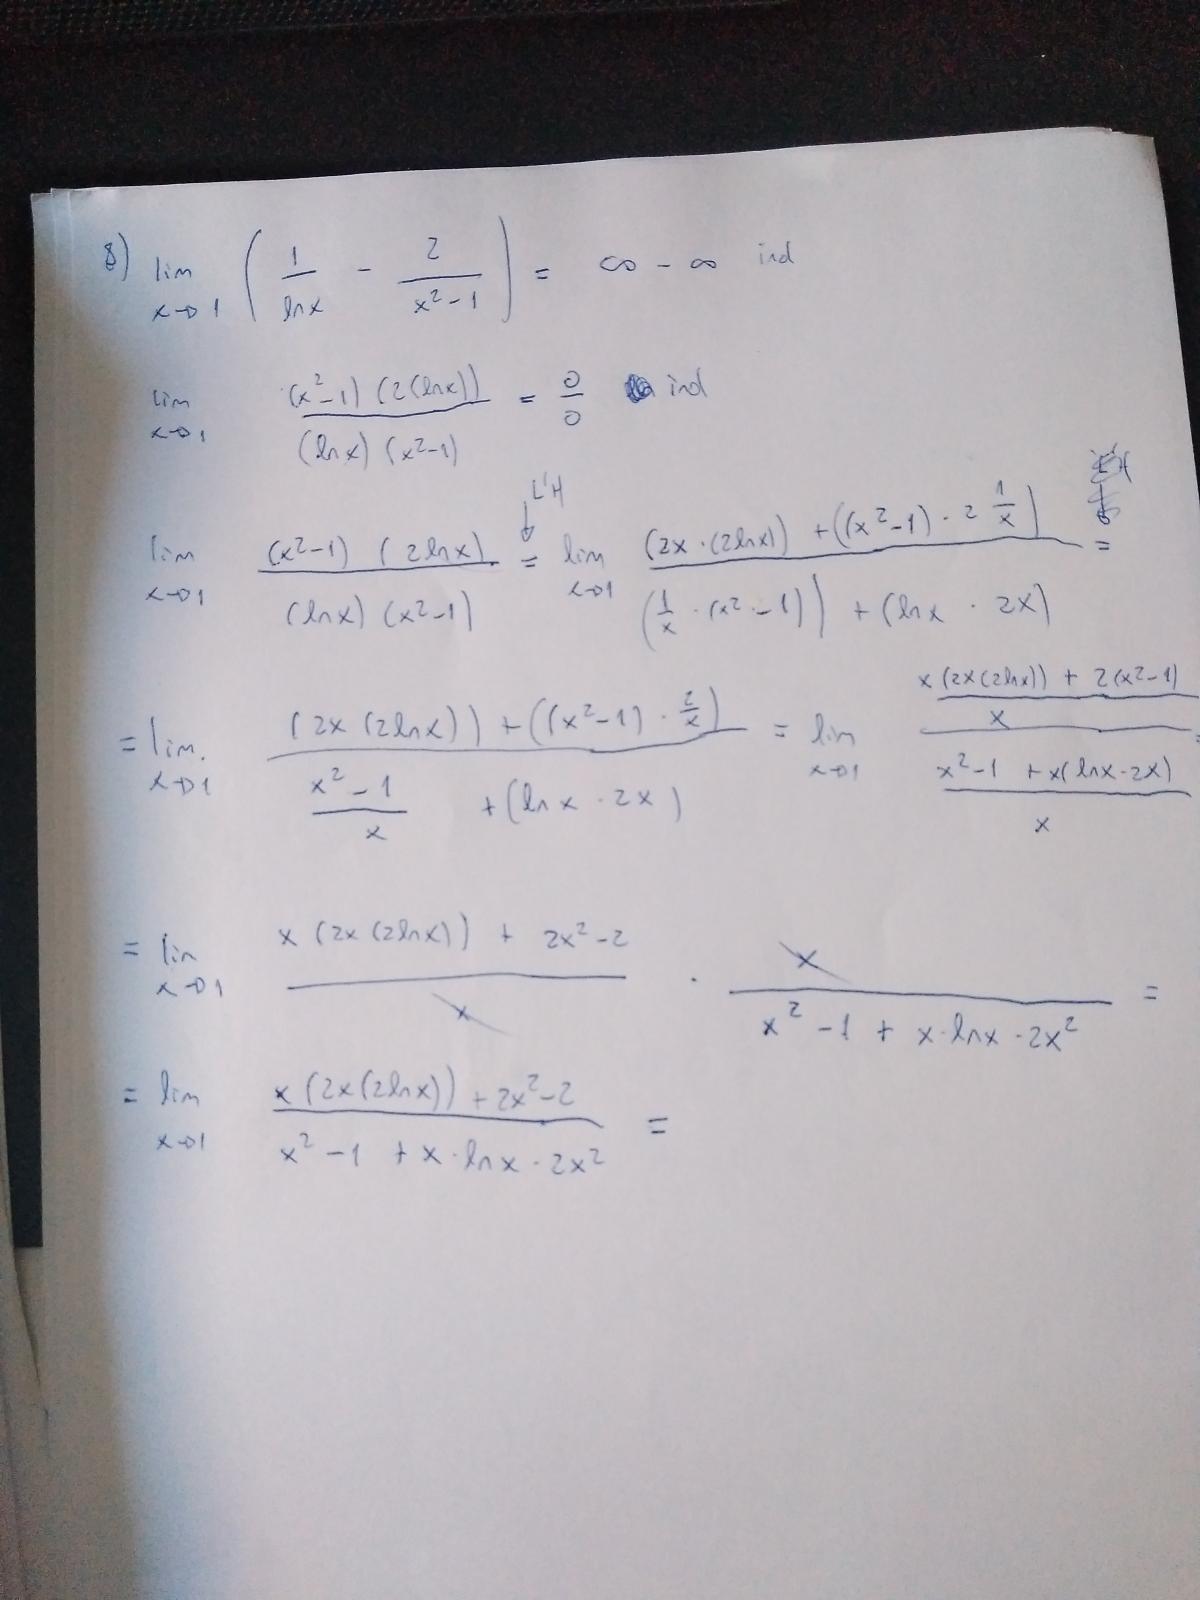 8) lim x→1 ( 1/lnx - 2/(x²-1) ) = ∞ - ∞ ind
lim x→1 (x²-1) (2(lnx)) / (lnx) (x²-1) = 0/0 ind
L'H
lim x→1 (x²-1) (2lnx) / (lnx) (x²-1) = lim x→1 (2x·(2lnx)) + ((x²-1)·2 1/x) / (1/x·(x²-1)) + (lnx · 2x) =
= lim x→1 (2x (2lnx)) + ((x²-1)·2/x) / (x²-1)/x + (lnx · 2x) = lim x→1 (x(2x(2lnx)) + 2(x²-1))/x / (x²-1 + x(lnx·2x))/x =
= lim x→1 x (2x (2lnx)) + 2x²-2 / x · x / x²-1 + x·lnx·2x² =
= lim x→1 x (2x(2lnx)) + 2x²-2 / x²-1 + x·lnx·2x² =